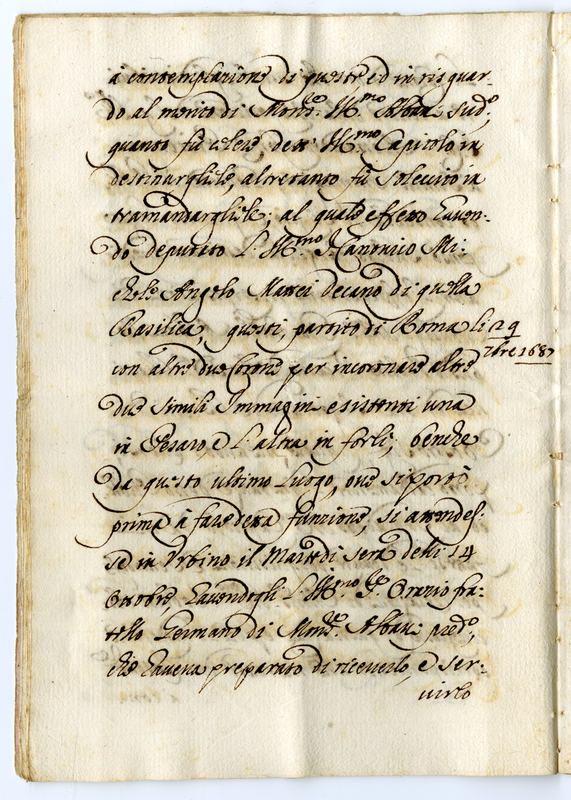 à contemplatione di queste ed in risguar-
do al merito di Mons.re Ill.mo Alban. sud.o,
quanto fù celere, dett' Ill.mo Capitolo in
destinargliele, altretanto fù solecito in
tramandargliele; al quale effetto haven-
do deputato l'Ill.mo S. Canonico Mi:
chele Angelo Mattei decano di quella
Basilica, questi, partito di Roma li 29
7bre 1687
con altre due Corone per incoronare altre
due simili Immagin. esistenti una
in Pesaro, e l'altra in forlì, benche
da questo ultimo Luogo, ove si portò
prima à fare detta funzione, si attendes:
se in Urbino il Martedi sera delli 14
Ottobre, havendogli l'Ill.mo S.re Orazio fra:
tello Germano di Mons.re Alban. pred.o,
che haveva preparato di riceverlo, e ser-
virlo